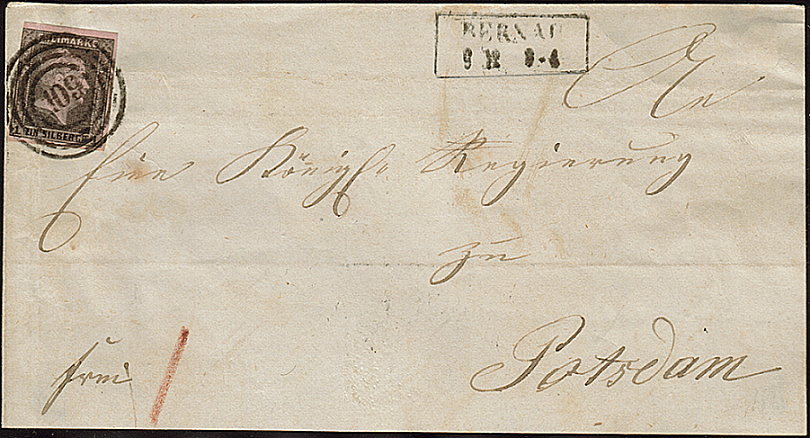 FREIMARKE
109
1 EIN SILBERGR. 1
BERNAU
9 12 3-4
An
Eine Königl. Regierung
zu
Potsdam
frei